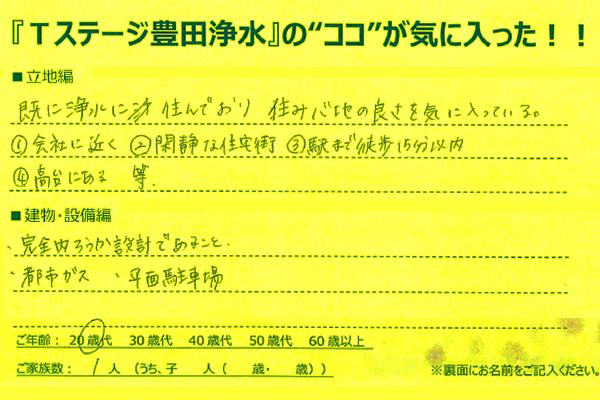 『Tステージ豊田浄水』の“ココ”が気に入った！！
■立地編
既に浄水に 住んでおり 住み心地の良さを気に入っている。
①会社に近く ②閑静な住宅街 ③駅まで徒歩15分以内
④高台にある 等.
■建物・設備編
・完全内ろうか設計であること.
・都市ガス ・平面駐車場
ご年齢： 20歳代 30歳代 40歳代 50歳代 60歳以上
ご家族数： 1 人 （うち、子 人（ 歳・ 歳））
※裏面にお名前をご記入ください。